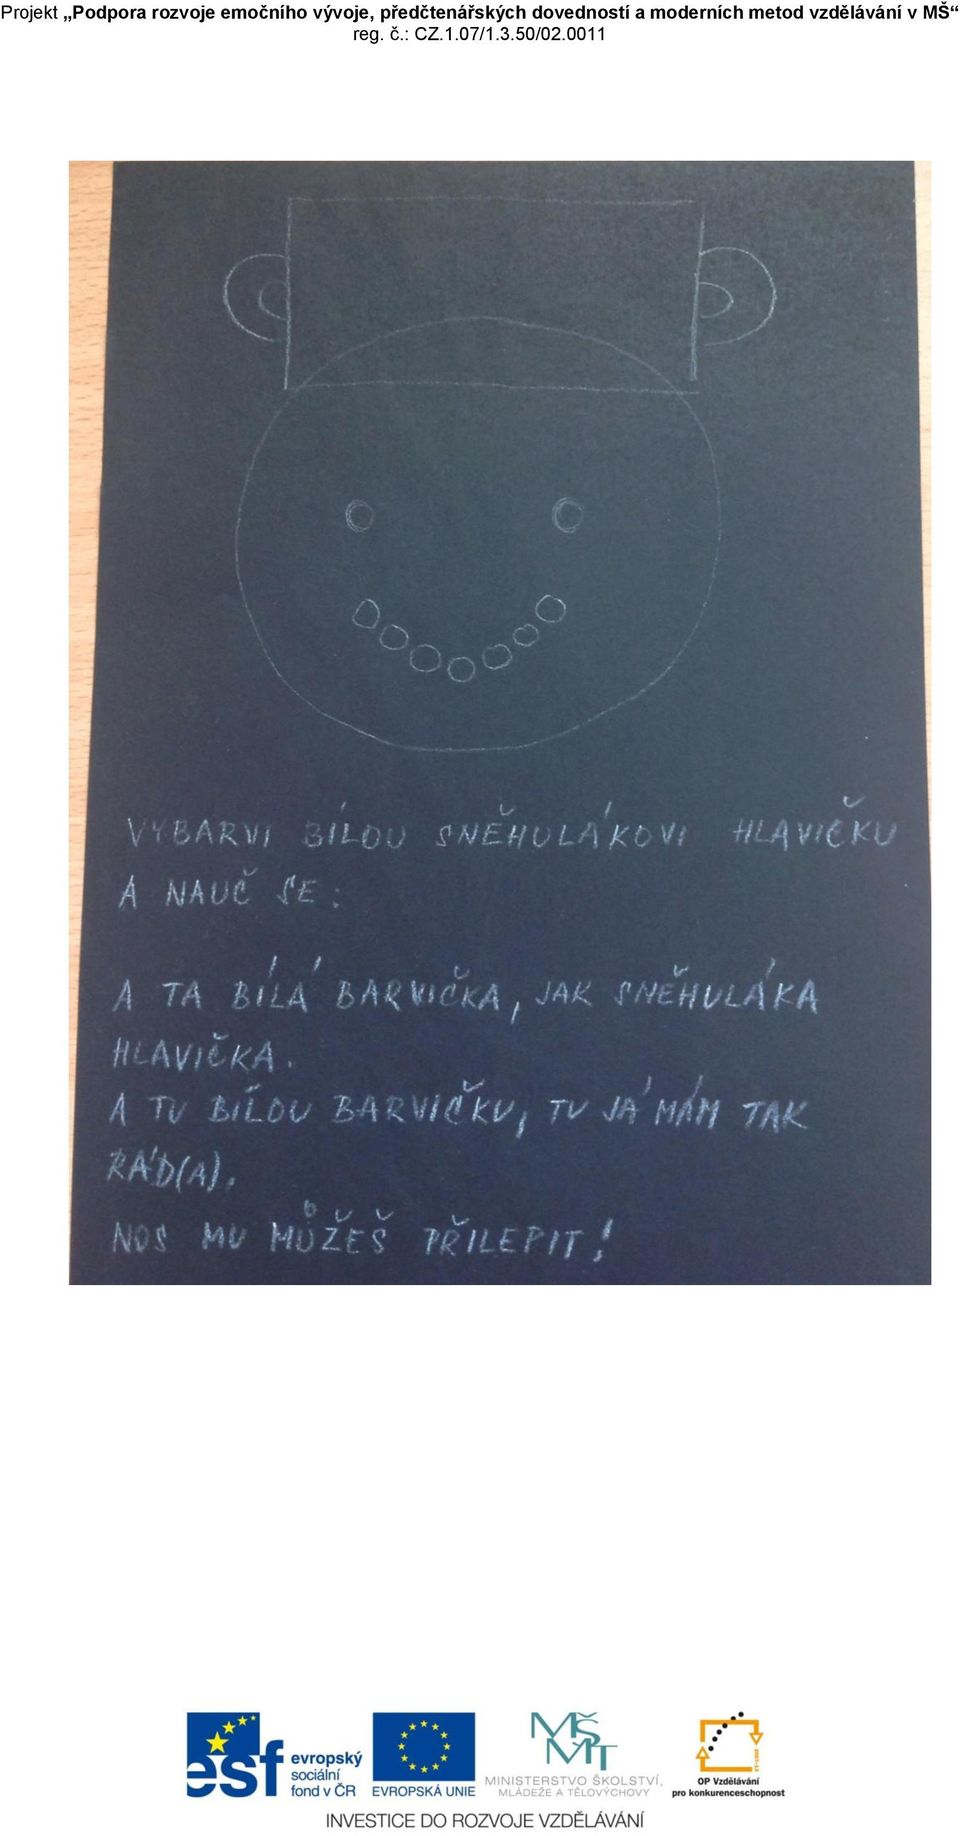 Projekt „Podpora rozvoje emočního vývoje, předčtenářských dovedností a moderních metod vzdělávání v MŠ“
reg. č.: CZ.1.07/1.3.50/02.0011
VYBARVI BÍLOU SNĚHULÁKOVI HLAVIČKU
A NAUČ SE:
A TA BÍLÁ BARVIČKA, JAK SNĚHULÁKA
HLAVIČKA.
A TU BÍLOU BARVIČKU, TU JÁ MÁM TAK
RÁD(A).
NOS MU MŮŽEŠ PŘILEPIT!
esf evropský
sociální
fond v ČR
EVROPSKÁ UNIE
MŠMT
MINISTERSTVO ŠKOLSTVÍ,
MLÁDEŽE A TĚLOVÝCHOVY
2007-13
OP Vzdělávání
pro konkurenceschopnost
INVESTICE DO ROZVOJE VZDĚLÁVÁNÍ